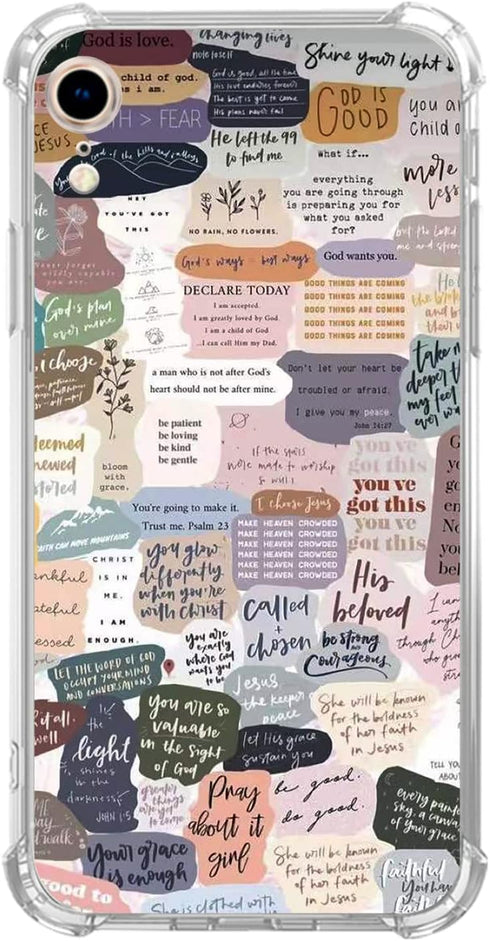 God is love.
changing lives
note to self
Shine your light
child of god.
as i am.
God is good, all the time
His love endures forever
The best is yet to come
His plans never fail
GOD IS
GOOD
you ar
child o
TH > FEAR
CE
ESUS
He left the 99
to find me
God of the hills and valleys
what if...
everything
you are going through
is preparing you for
what you asked
for?
more
less
HEY
YOU'VE GOT
THIS
NO RAIN, NO FLOWERS.
but the Lord
me and streng
Never forget
wildly capable
you are.
God's ways = best ways
God wants you.
DECLARE TODAY
I am accepted.
I am greatly loved by God.
I am a child of God
...I can call Him my Dad.
GOOD THINGS ARE COMING
GOOD THINGS ARE COMING
GOOD THINGS ARE COMING
GOOD THINGS ARE COMING
GOOD THINGS ARE COMING
God's plan
over mine
I choose
a man who is not after God's
heart should not be after mine.
Don't let your heart be
troubled or afraid.
I give you my peace.
John 14:27
take m
deeper t
my feet
ever wa
be patient
be loving
be kind
be gentle
If the stars
were made to worship
so will I
you've
got this
you've
got this
you've
got this
deemed
newed
stored
bloom
with
grace.
You're going to make it.
Trust me. Psalm 23
I choose Jesus
MAKE HEAVEN CROWDED
MAKE HEAVEN CROWDED
MAKE HEAVEN CROWDED
MAKE HEAVEN CROWDED
MAKE HEAVEN CROWDED
FAITH CAN MOVE MOUNTAINS
CHRIST
IS IN
ME.
I AM
ENOUGH.
you glow
differently
when you're
with Christ
ankful
ateful
essed
His
beloved
called
+
chosen
be strong
and
Courageous
I can
anyth
through Ch
who give
stre
you are
exactly
where God
wants you
to be
LET THE WORD OF GOD
OCCUPY YOUR MIND
AND CONVERSATIONS
Jesus
the keeper of
peace
She will be known
for the boldness
of her faith
in Jesus
you are so
valuable
in the sight
of God
let His grace
sustain you
it all.
well
the
light
shines
in the
darkness
JOHN 1:5
greater
things
are yet
to come
Pray
about it
girl
be good.
do good.
TELL YOU
ABOU
every painted
sky, a canvas
of your grace
Your grace
is enough
She will be known
for the boldness
of her faith
in Jesus
faithful
You have
She is clothed with
good to